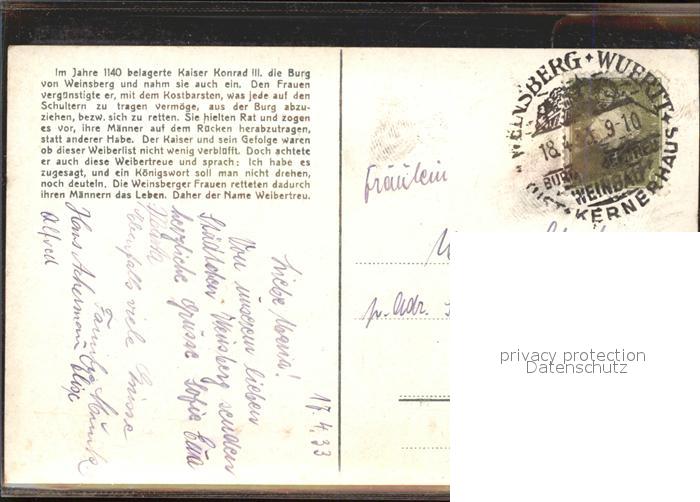 Im Jahre 1140 belagerte Kaiser Konrad III. die Burg
von Weinsberg und nahm sie auch ein. Den Frauen
vergünstigte er, mit dem Kostbarsten, was jede auf den
Schultern zu tragen vermöge, aus der Burg abzu-
ziehen, bezw. sich zu retten. Sie hielten Rat und zogen
es vor, ihre Männer auf dem Rücken herabzutragen,
statt anderer Habe. Der Kaiser und sein Gefolge waren
ob dieser Weiberlist nicht wenig verblüfft. Doch achtete
er auch diese Weibertreue und sprach: Ich habe es
zugesagt, und ein Königswort soll man nicht drehen,
noch deuteln. Die Weinsberger Frauen retteten dadurch
ihren Männern das Leben. Daher der Name Weibertreu.
17.4.33
Liebe Maria!
Von unserem lieben
Städtchen Weinsberg senden
herzliche Grüsse Sofie
Ebenfalls viele Grüsse
Hans
Alfred
WEINSBERG + WUERTT +
18.4. 9-10
WEINBAU
KERNERHAUS
Fräulein
p. Adr.
privacy protection
Datenschutz